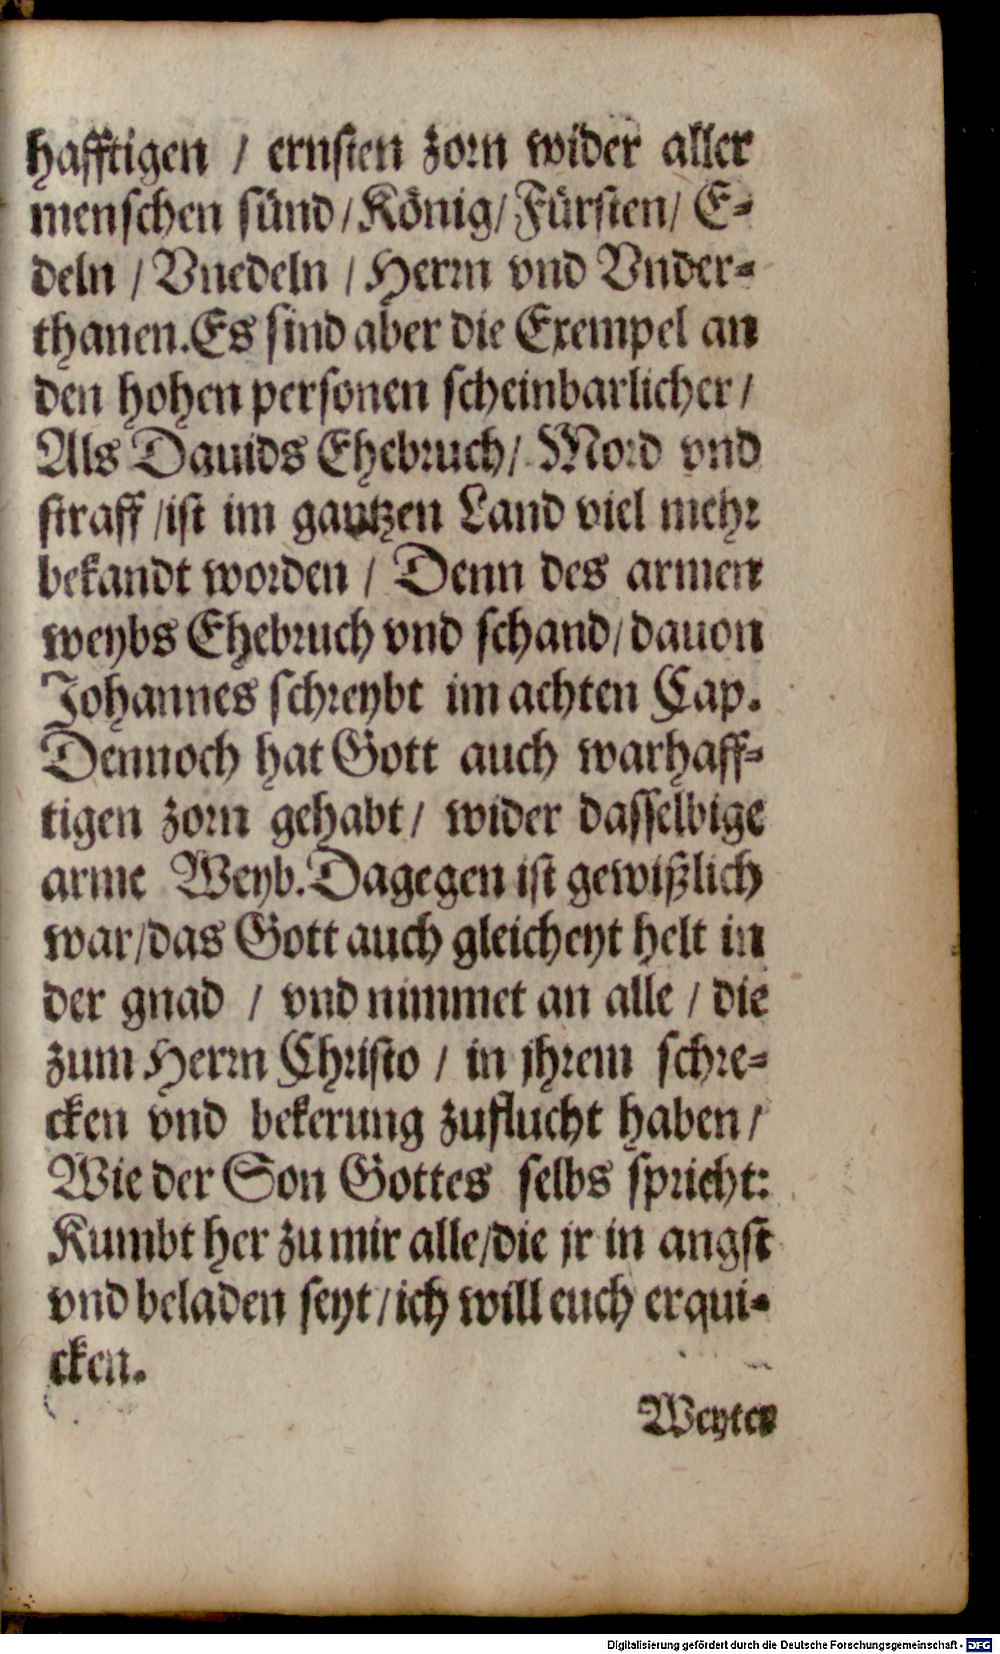 hafftigen / ernsten zorn wider aller
menschen sünd / König / Fürsten / E-
deln / Vnedeln / Herrn vnd Vnder-
thanen. Es sind aber die Exempel an
den hohen personen scheinbarlicher /
Als Dauids Ehebruch / Mord vnd
straff / ist im gantzen Land viel mehr
bekandt worden / Denn des armen
weybs Ehebruch vnd schand / dauon
Johannes schreybt im achten Cap.
Dennoch hat Gott auch warhaff-
tigen zorn gehabt / wider dasselbige
arme Weyb. Dagegen ist gewißlich
war / das Gott auch gleicheyt helt in
der gnad / vnd nimmet an alle / die
zum Herrn Christo / in jhrem schre-
cken vnd bekerung zuflucht haben /
Wie der Son Gottes selbs spricht:
Kumbt her zu mir alle / die jr in angst
vnd beladen seyt / ich will euch erqui-
cken.
Weyter
Digitalisierung gefördert durch die Deutsche Forschungsgemeinschaft - DFG